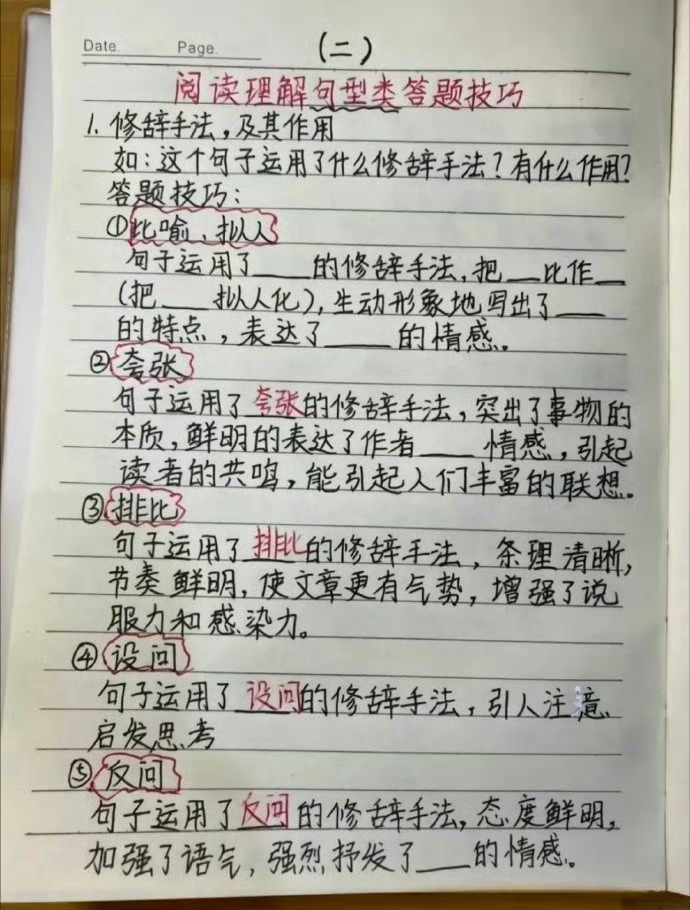 Date. Page.
（二）
阅读理解句型类答题技巧
1. 修辞手法，及其作用
如：这个句子运用了什么修辞手法？有什么作用？
答题技巧：
①比喻、拟人
句子运用了____的修辞手法，把__比作__
（把___拟人化），生动形象地写出了____
的特点，表达了____的情感。
②夸张
句子运用了夸张的修辞手法，突出了事物的
本质，鲜明的表达了作者____情感，引起
读者的共鸣，能引起人们丰富的联想。
③排比
句子运用了排比的修辞手法，条理清晰，
节奏鲜明，使文章更有气势，增强了说
服力和感染力。
④设问
句子运用了设问的修辞手法，引人注意，
启发思考
⑤反问
句子运用了反问的修辞手法，态度鲜明，
加强了语气，强烈抒发了___的情感。